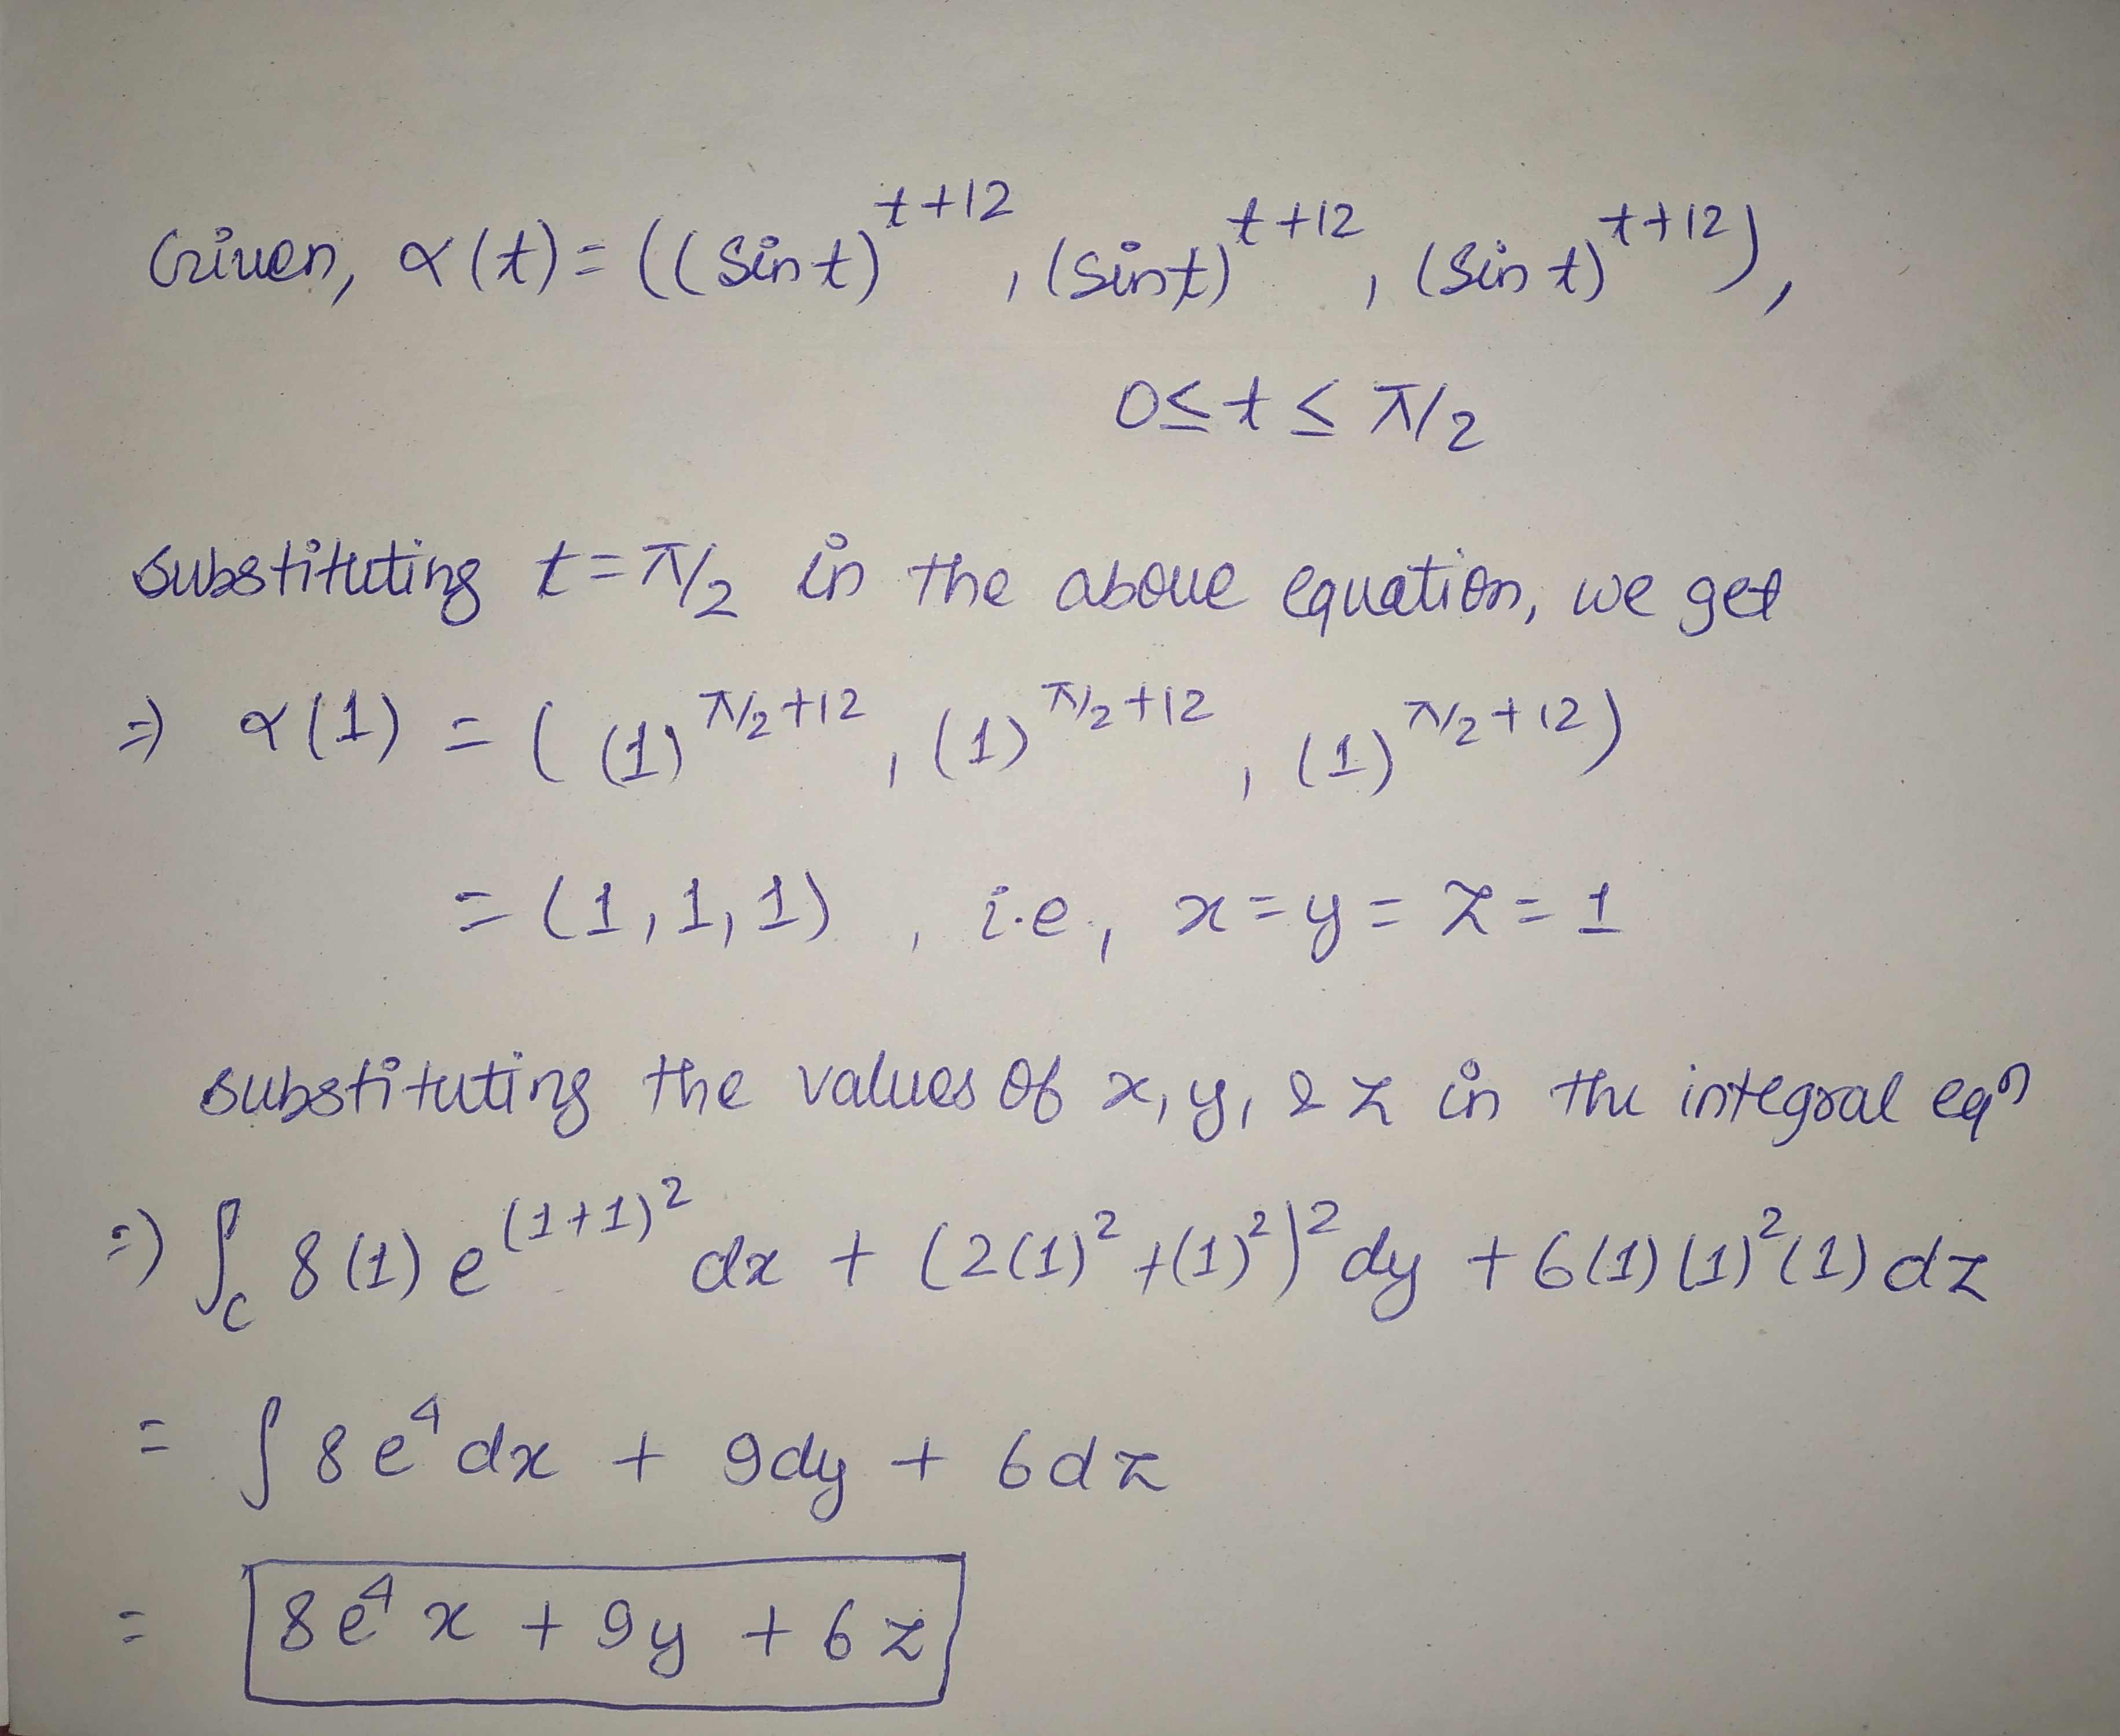 Given, α(t) = ((Sin t)^{t+12}, (Sin t)^{t+12}, (Sin t)^{t+12}),
0 ≤ t ≤ π/2
Substituting t = π/2 in the above equation, we get
⇒ α(1) = ((1)^{π/2+12}, (1)^{π/2+12}, (1)^{π/2+12})
= (1, 1, 1), i.e., x = y = z = 1
substituting the values of x, y, & z in the integral eqn
⇒ ∫_C 8(1) e^{(1+1)^2} dx + (2(1)^2 + (1)^2)^2 dy + 6(1)(1)^2(1) dz
= ∫ 8e^4 dx + 9dy + 6dz
= 8e^4 x + 9y + 6z